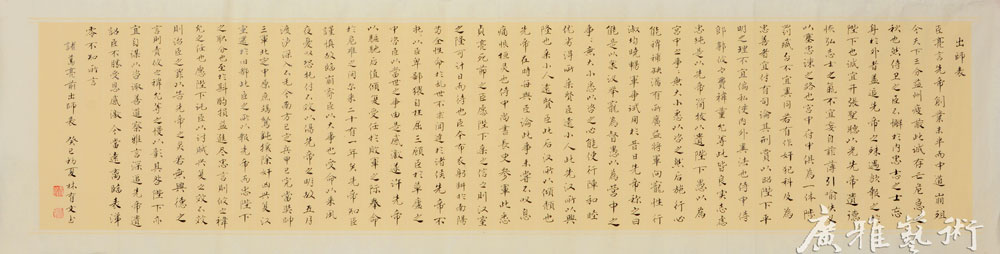 出師表
臣亮言先帝創業未半而中道崩殂
今天下三分益州疲敝此誠存亡危急
秋也然侍衛之臣不懈於內忠志之士忘
身於外者蓋追先帝之殊遇欲報之於
陛下也誠宜開張聖聽以光先帝遺德
恢弘志士之氣不宜妄自菲薄引喻失義
以塞忠諫之路也宮中府中俱為一體陟
罰臧否不宜異同若有作奸犯科及為
忠善者宜付有司論其刑賞以昭陛下平
明之理不宜偏私使內外異法也侍中侍
郎郭攸之費禕董允等此皆良實志慮
忠純是以先帝簡拔以遺陛下愚以為
宮中之事事無大小悉以咨之然后施行必
能裨補闕漏有所廣益將軍向寵性行
淑均曉暢軍事試用於昔日先帝稱之曰
能是以眾議舉寵為督愚以為營中之
事無大小悉以咨之必能使行陣和睦
優劣得所親賢臣遠小人此先漢所以興
隆也親小人遠賢臣此后漢所以傾頹也
先帝在時每與臣論此事未嘗不嘆息
痛恨桓靈也侍中尚書長史參軍此悉
貞亮死節之臣願陛下親之信之則漢室
之隆可計日而待也臣本布衣躬耕於南陽
苟全性命於亂世不求聞達於諸侯先帝不
以臣卑鄙猥自枉屈三顧臣於草廬之
中咨臣以當世之事由是感激遂許先帝
以驅馳后值傾覆受任於敗軍之際奉命
於危難之間爾來二十有一年矣先帝知臣
謹慎故臨崩寄臣以大事也受命以來夙
夜憂嘆恐託付不效以傷先帝之明故五月
渡瀘深入不毛今南方已定兵甲已足當獎帥
三軍北定中原庶竭駑鈍攘除奸凶興復漢
室還於舊都此臣所以報先帝而忠陛下
之職分也至於斟酌損益進盡忠言則攸之禕
允之任也願陛下託臣以討賊興復之效不效
則治臣之罪以告先帝之靈若無興德之
言則責攸之禕允等之慢以彰其咎陛下亦
宜自謀以諮諏善道察納雅言深追先帝遺
詔臣不勝受恩感激今當遠離臨表涕
零不知所言
諸葛亮前出師表 癸巳初夏 林有文書
廣雅藝術